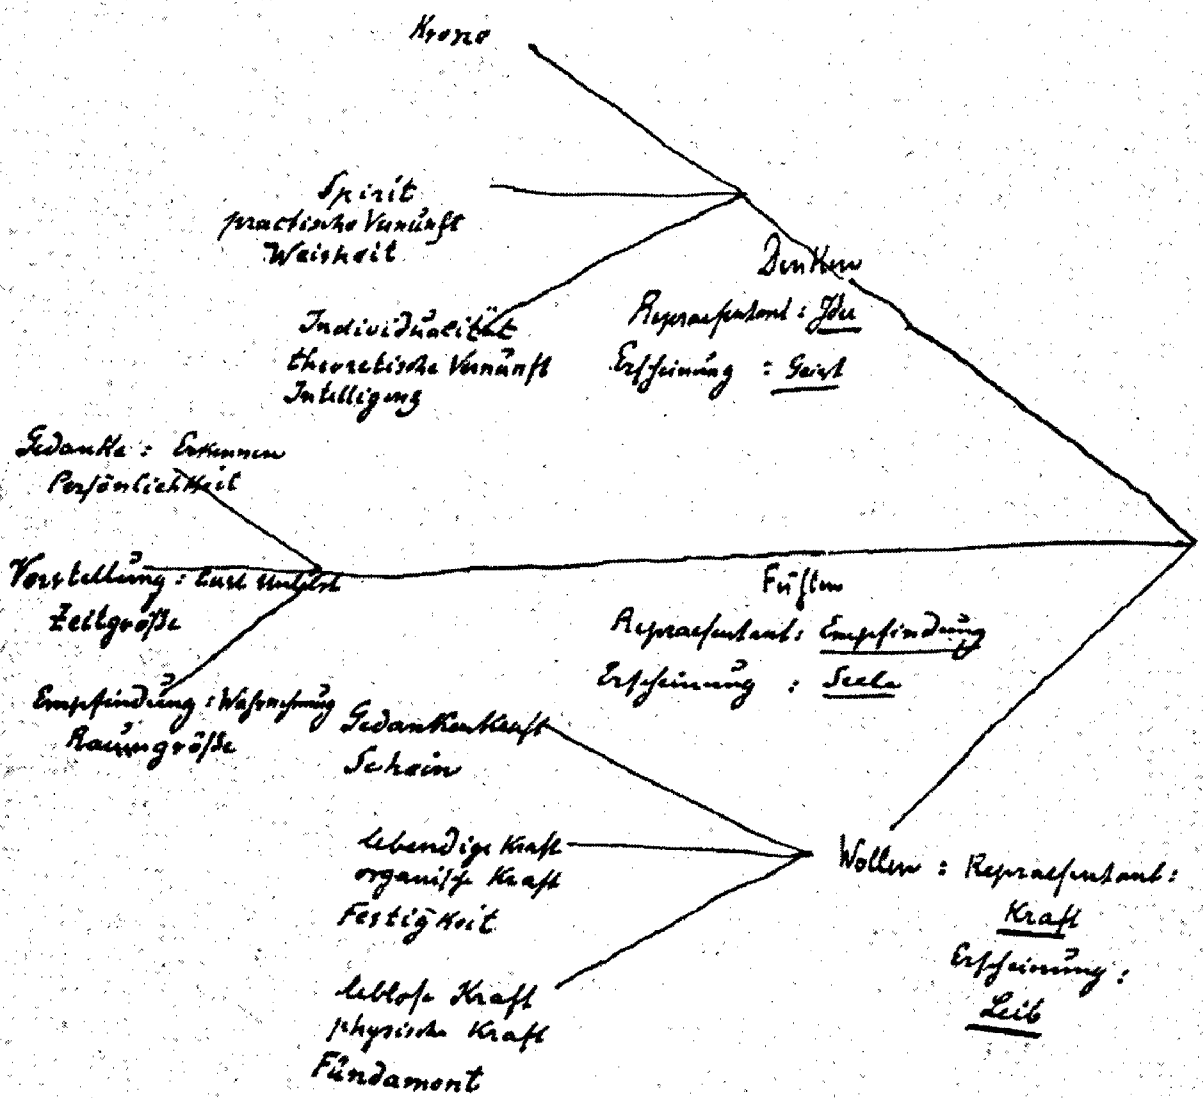 Krone
Spirit
practische Vernunft
Weisheit
Individualität
theoretische Vernunft
Intelligenz
Denken
Repraesentant : Idee
Erscheinung : Geist
Gedanke : Erkennen
Persönlichkeit
Vorstellung :
Zeitgröße
Empfindung : Wahrnehmung
Raumgröße
Fühlen
Repraesentant : Empfindung
Erscheinung : Seele
Gedankenkraft
Schein
lebendige Kraft
organische Kraft
Festigkeit
leblose Kraft
physische Kraft
Fundament
Wollen : Repraesentant :
Kraft
Erscheinung :
Leib